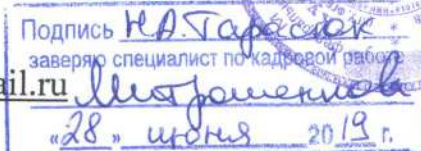 Подпись Н.А. Тарасюк
заверяю специалист по кадровой работе
ail.ru
«28» июня 2019 г.